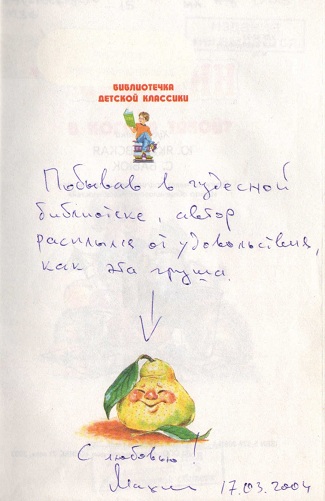 БИБЛИОТЕЧКА
ДЕТСКОЙ КЛАССИКИ
Побывав в чудесной
библиотеке, автор
расплылся от удовольствия,
как эта груша.
С любовью!
17.03.2004